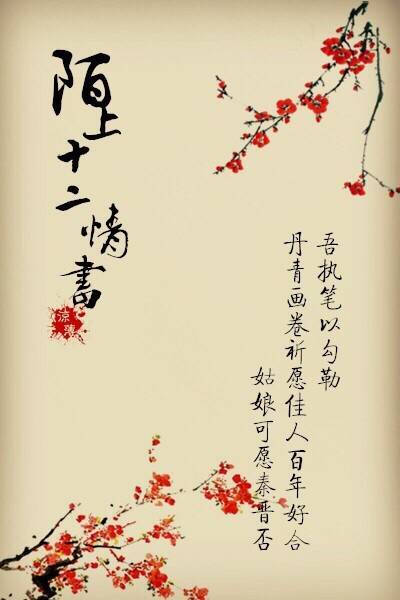 陌上十二情書
涼薄
吾执笔以勾勒
丹青画卷祈愿佳人百年好合
姑娘可愿秦晋否